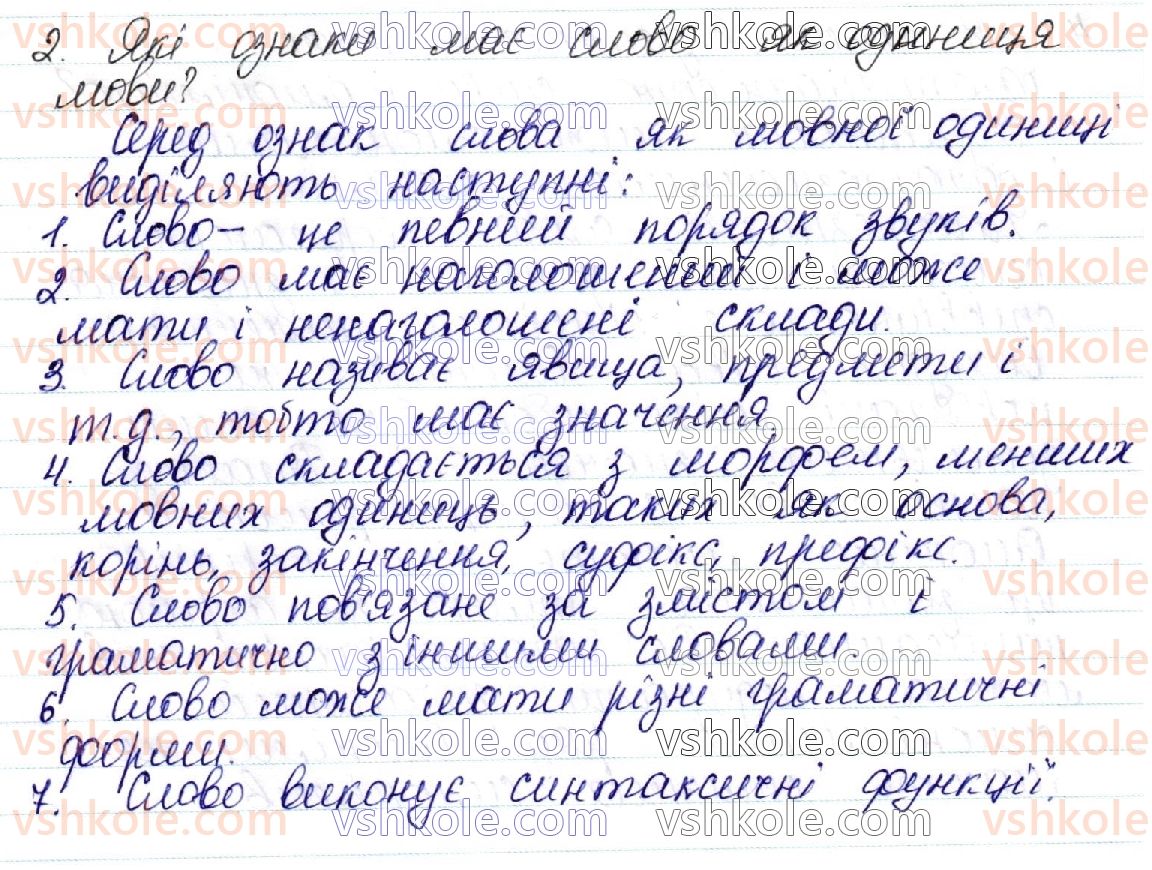 2. Які ознаки має слово як одиниця
мови?
Серед ознак слова як мовної одиниці
виділяють наступні:
1. Слово – це певний порядок звуків.
2. Слово має наголошений і може
мати і ненаголошені склади.
3. Слово називає явища, предмети і
т.д., тобто має значення.
4. Слово складається з морфем, менших
мовних одиниць, таких як основа,
корінь, закінчення, суфікс, префікс.
5. Слово пов'язане за змістом і
граматично з іншими словами.
6. Слово може мати різні граматичні
форми.
7. Слово виконує синтаксичні функції.
vshkole.com